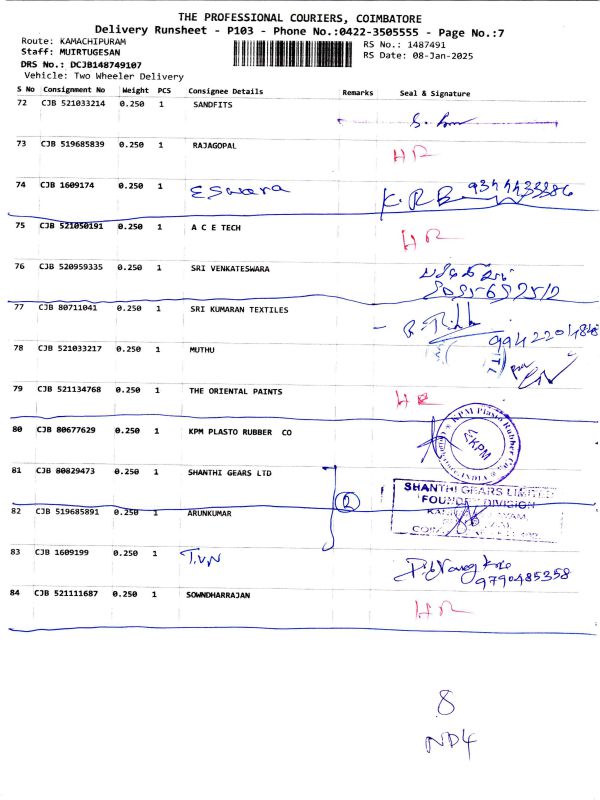 THE PROFESSIONAL COURIERS, COIMBATORE
Delivery Runsheet - P103 - Phone No.:0422-3505555 - Page No.:7
Route: KAMACHIPURAM
RS No.: 1487491
Staff: MUIRTUGESAN
RS Date: 08-Jan-2025
DRS No.: DCJB148749107
Vehicle: Two Wheeler Delivery
S No Consignment No Weight PCS Consignee Details Remarks Seal & Signature
72 CJB 521033214 0.250 1 SANDFITS
73 CJB 519685839 0.250 1 RAJAGOPAL HR
74 CJB 1609174 0.250 1 ESwara K.RB 9344433386
75 CJB 521050191 0.250 1 A C E TECH HR
76 CJB 520959335 0.250 1 SRI VENKATESWARA
77 CJB 80711041 0.250 1 SRI KUMARAN TEXTILES
78 CJB 521033217 0.250 1 MUTHU
79 CJB 521134768 0.250 1 THE ORIENTAL PAINTS HR
80 CJB 80677629 0.250 1 KPM PLASTO RUBBER CO KPM Plasto Rubber KPM
81 CJB 80829473 0.250 1 SHANTHI GEARS LTD 2 SHANTHI GEARS LIMITED
FOUNDRY DIVISION
82 CJB 519685891 0.250 1 ARUNKUMAR
83 CJB 1609199 0.250 1 T.VN 9790485358
84 CJB 521111687 0.250 1 SOWNDHARRAJAN HR
8
ND4